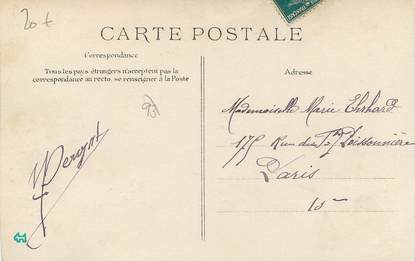 20 f
CARTE POSTALE
Correspondance
Tous les pays étrangers n'acceptent pas la
correspondance au recto. se renseigner à la Poste
Adresse
Mademoiselle Marie Ehrhard
175 Rue du Fg Poissonnière
Paris